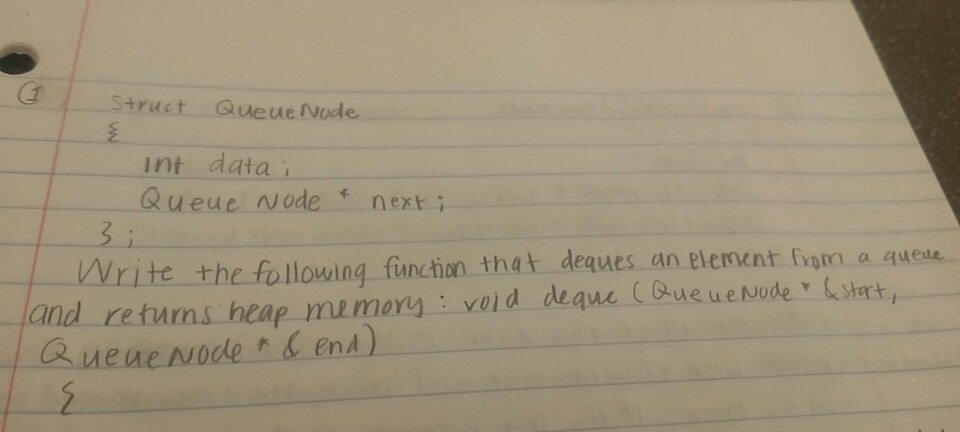 ① Struct QueueNode
{
int data;
Queue Node * next;
};
Write the following function that deques an element from a queue
and returns heap memory: void deque (QueueNode * & start,
QueueNode * & end)
{